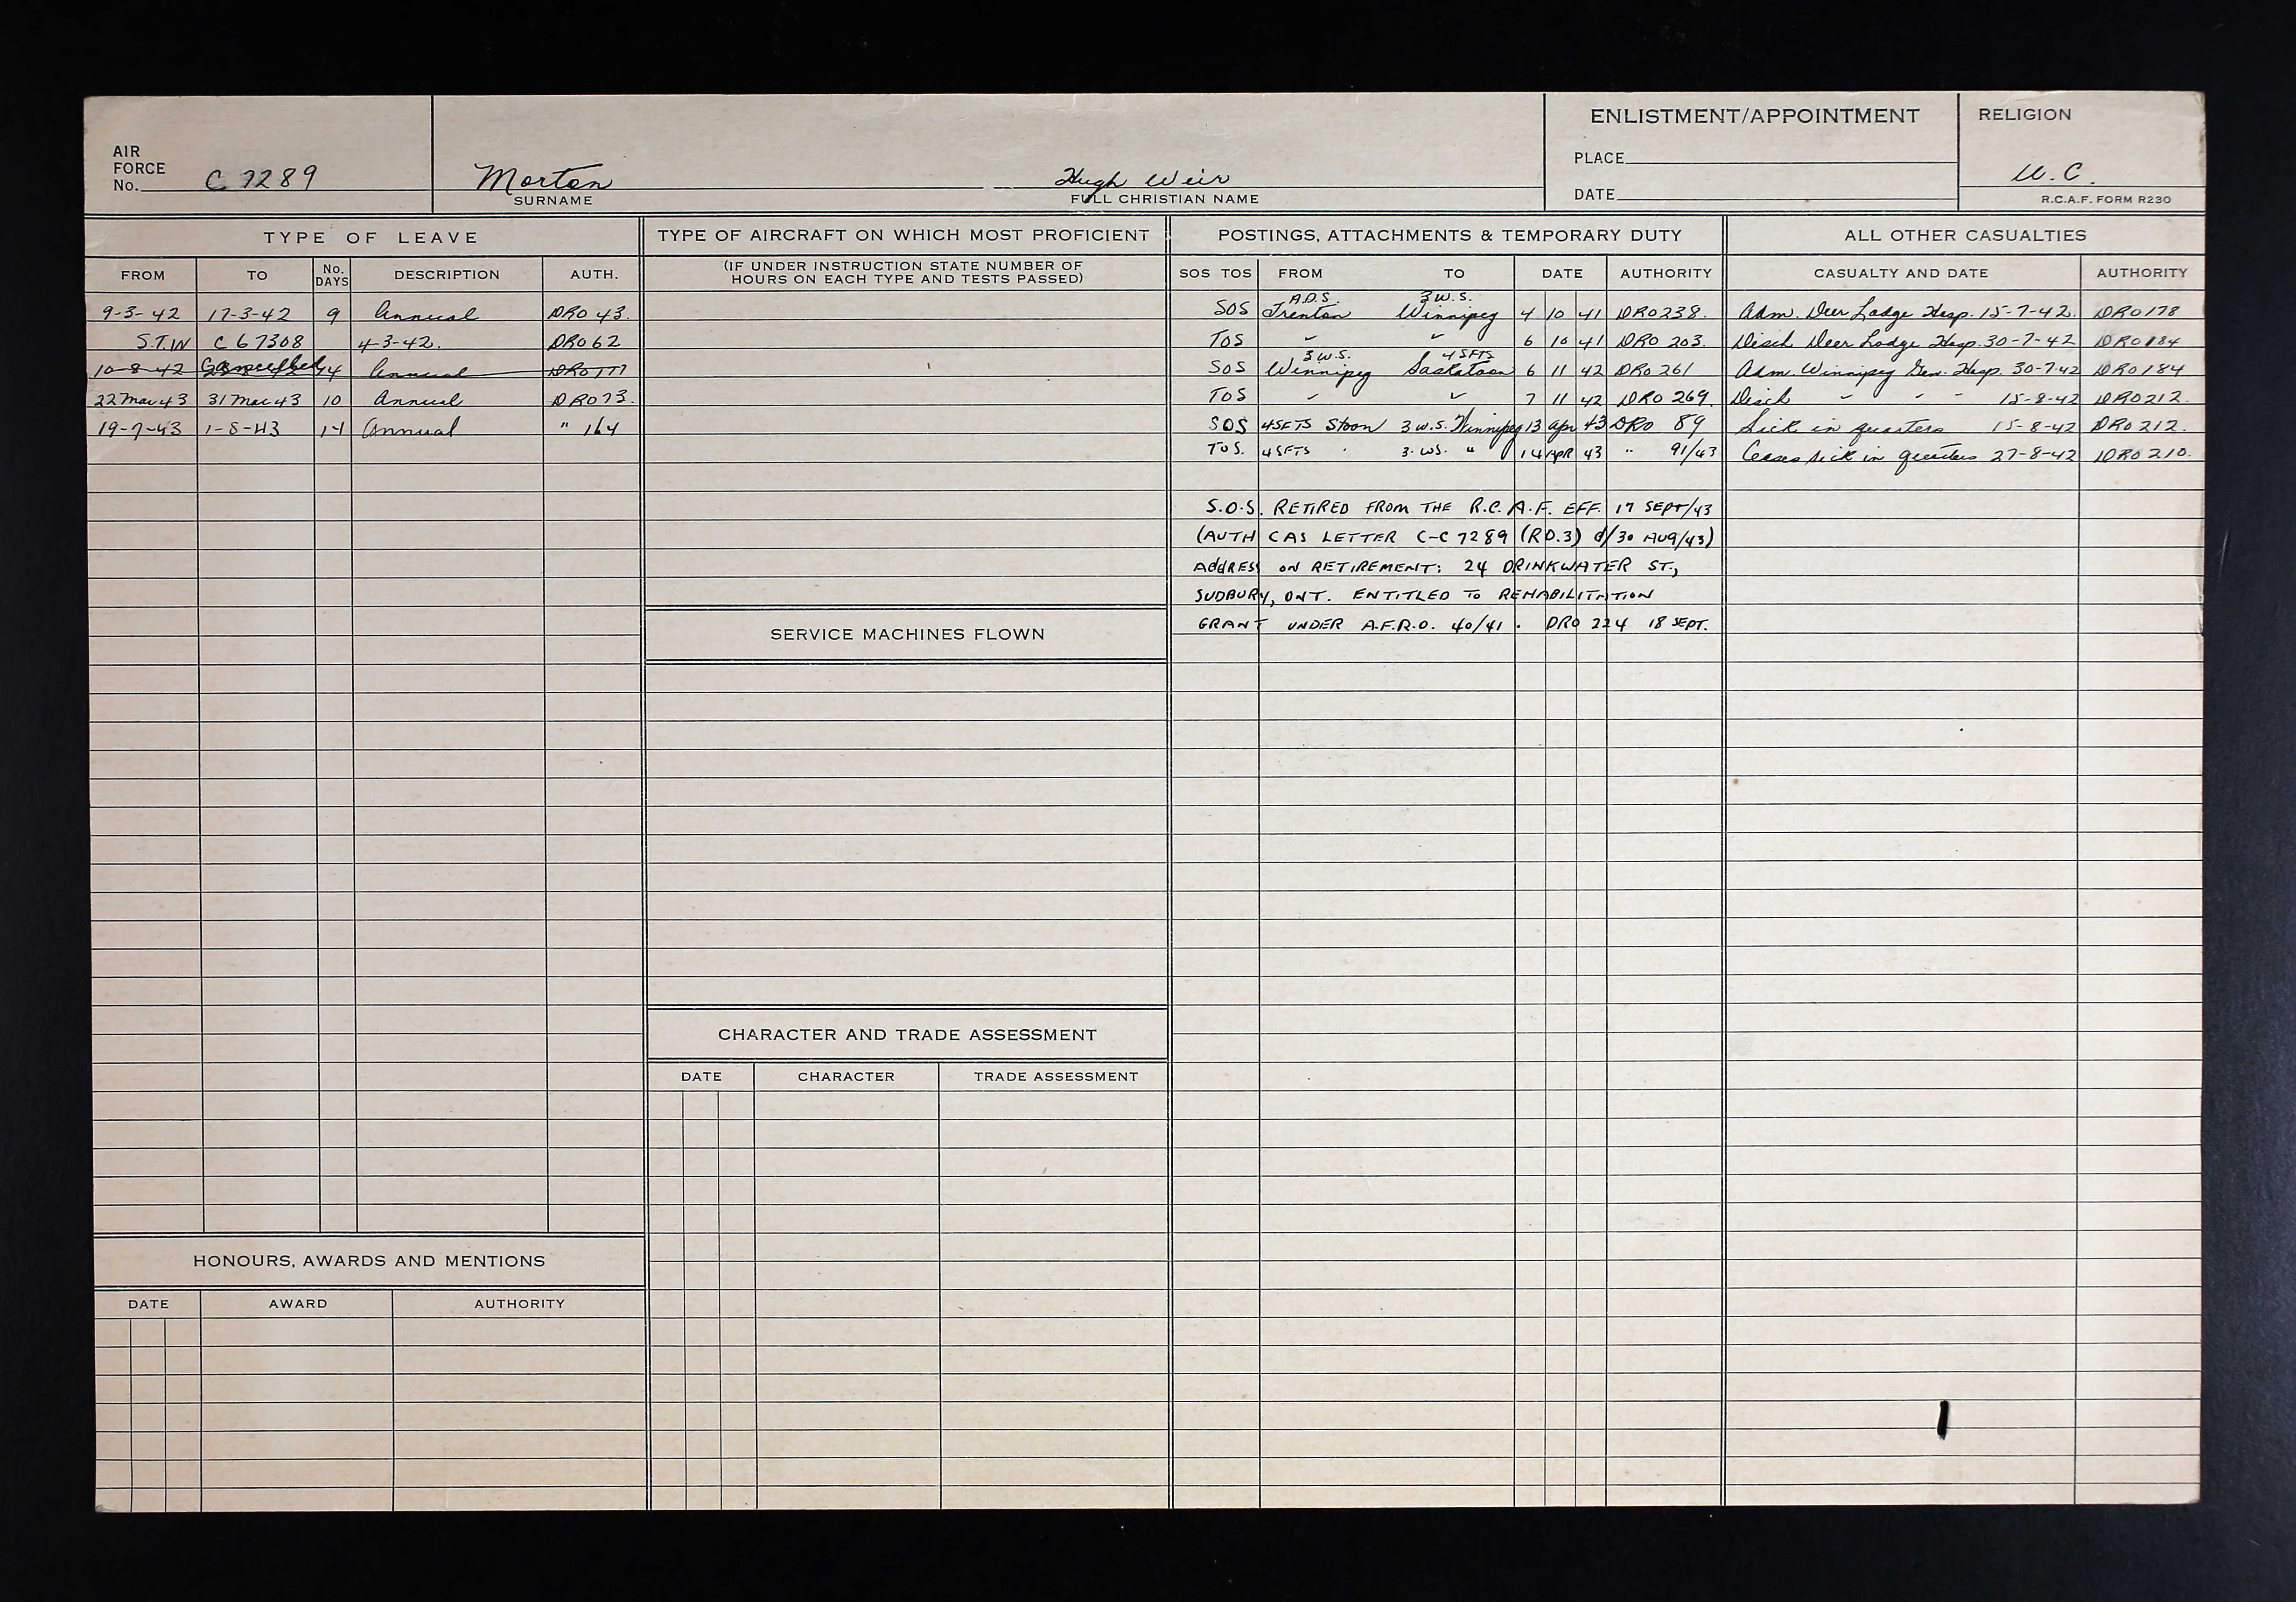 AIR FORCE No. C 7289
Morton
SURNAME
Hugh Weir
FULL CHRISTIAN NAME
ENLISTMENT/APPOINTMENT
PLACE
DATE
RELIGION
U.C.
R.C.A.F. FORM R230
TYPE OF LEAVE
FROM TO No. DAYS DESCRIPTION AUTH.
9-3-42 17-3-42 9 Annual DRO 43.
S.T.W C 67308 4-3-42. DRO 62
10-8-42 Cancelled 14 Annual DRO 177
22 Mar 43 31 Mar 43 10 Annual DRO 73.
19-7-43 1-8-43 14 Annual " 164
HONOURS, AWARDS AND MENTIONS
DATE AWARD AUTHORITY
TYPE OF AIRCRAFT ON WHICH MOST PROFICIENT
(IF UNDER INSTRUCTION STATE NUMBER OF
HOURS ON EACH TYPE AND TESTS PASSED)
SERVICE MACHINES FLOWN
CHARACTER AND TRADE ASSESSMENT
DATE CHARACTER TRADE ASSESSMENT
POSTINGS, ATTACHMENTS & TEMPORARY DUTY
SOS TOS FROM TO DATE AUTHORITY
A.D.S. 3 W.S.
SOS Trenton Winnipeg 4 10 41 DRO 238.
TOS " " 6 10 41 DRO 203.
3 W.S. 4 SFTS
SOS Winnipeg Saskatoon 6 11 42 DRO 261
TOS " " 7 11 42 DRO 269.
SOS 4SFTS Stoon 3 W.S. Winnipeg 13 Apr 43 DRO 89
TOS. 4SFTS " 3. WS. " 14 APR 43 " 91/43
S.O.S. RETIRED FROM THE R.C.A.F. EFF. 17 SEPT/43
(AUTH CAS LETTER C-C7289 (RO.3) d/30 AUG/43)
ADDRESS ON RETIREMENT: 24 DRINKWATER ST.,
SUDBURY, ONT. ENTITLED TO REHABILITATION
GRANT UNDER A.F.R.O. 40/41. DRO 224 18 SEPT.
ALL OTHER CASUALTIES
CASUALTY AND DATE AUTHORITY
Adm. Deer Lodge Hosp. 15-7-42. DRO 178
Disch Deer Lodge Hosp. 30-7-42 DRO 184
Adm. Winnipeg Gen. Hosp. 30-7-42 DRO 184
Disch " " " 15-8-42 DRO 212.
Sick in quarters 15-8-42 DRO 212.
Ceases sick in quarters 27-8-42 DRO 210.